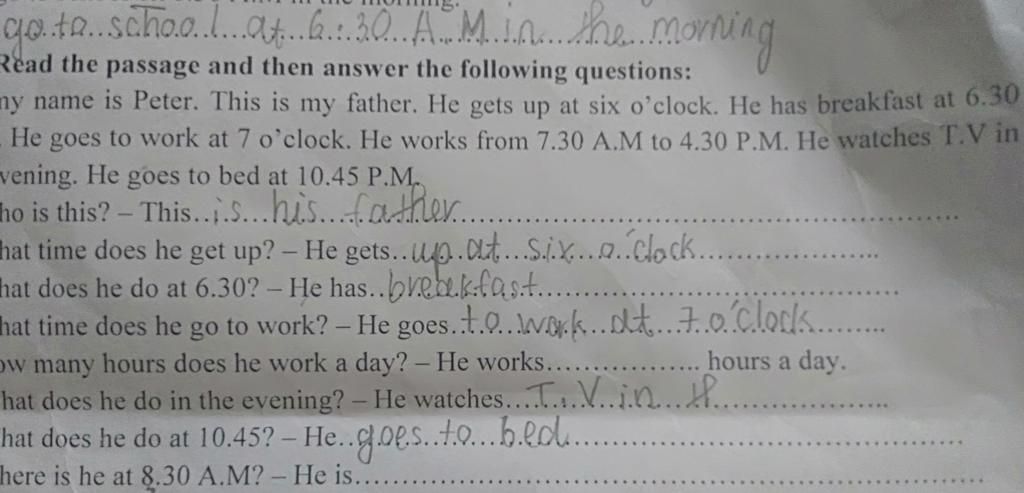 go to school at 6:30 A.M in the morning
Read the passage and then answer the following questions:
my name is Peter. This is my father. He gets up at six o'clock. He has breakfast at 6.30
He goes to work at 7 o'clock. He works from 7.30 A.M to 4.30 P.M. He watches T.V in
vening. He goes to bed at 10.45 P.M.
ho is this? – This..is...his...father....................
hat time does he get up? – He gets..up.at...six...o'clock....................
hat does he do at 6.30? – He has..breakfast....................
hat time does he go to work? – He goes.to..work..at...7.o'clock........
ow many hours does he work a day? – He works................ hours a day.
hat does he do in the evening? – He watches....T.V.in....................
hat does he do at 10.45? – He..goes..to...bed....................
here is he at 8.30 A.M? – He is....................